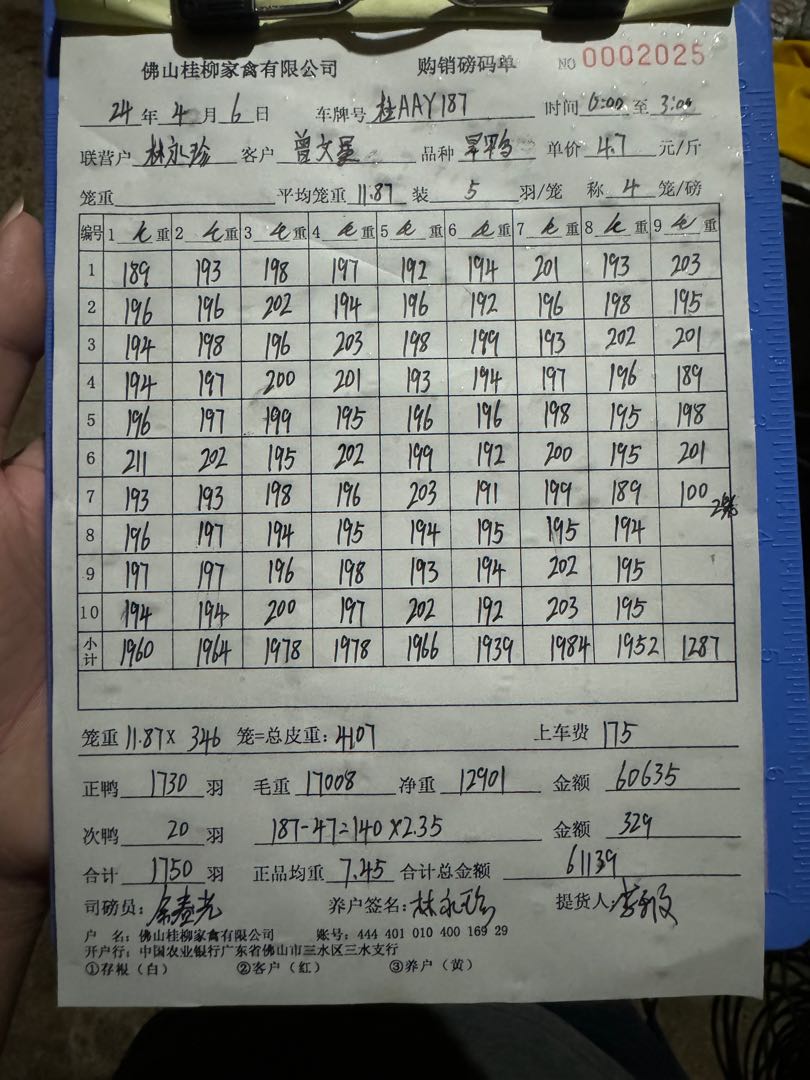 佛山桂柳家禽有限公司 购销磅码单 NO 0002025
24 年 4 月 6 日 车牌号 桂AAY187 时间 0:00 至 3:00
联营户 林永珍 客户 曾文星 品种 单价 4.7 元/斤
笼重 平均笼重 11.87 装 5 羽/笼 称 4 笼/磅
编号 1 毛重 2 毛重 3 毛重 4 毛重 5 毛重 6 毛重 7 毛重 8 毛重 9 毛重
1 189 193 198 197 192 194 201 193 203
2 196 196 202 194 196 192 196 198 195
3 194 198 196 203 198 199 193 202 201
4 194 197 200 201 193 194 197 196 189
5 196 197 199 195 196 196 198 195 198
6 211 202 195 202 199 192 200 195 201
7 193 193 198 196 203 191 199 189 100 2笼
8 196 197 194 195 194 195 195 194
9 197 197 196 198 193 194 202 195
10 194 194 200 197 202 192 203 195
小计 1960 1964 1978 1978 1966 1939 1984 1952 1287
笼重 11.87 X 346 笼=总皮重: 4107 上车费 175
正鸭 1730 羽 毛重 17008 净重 12901 金额 60635
次鸭 20 羽 187-47=140 X2.35 金额 329
合计 1750 羽 正品均重 7.45 合计总金额 61139
司磅员: 养户签名: 林永珍 提货人:
户 名: 佛山桂柳家禽有限公司 账号: 444 401 010 400 169 29
开户行: 中国农业银行广东省佛山市三水区三水支行
①存根（白） ②客户（红） ③养户（黄）